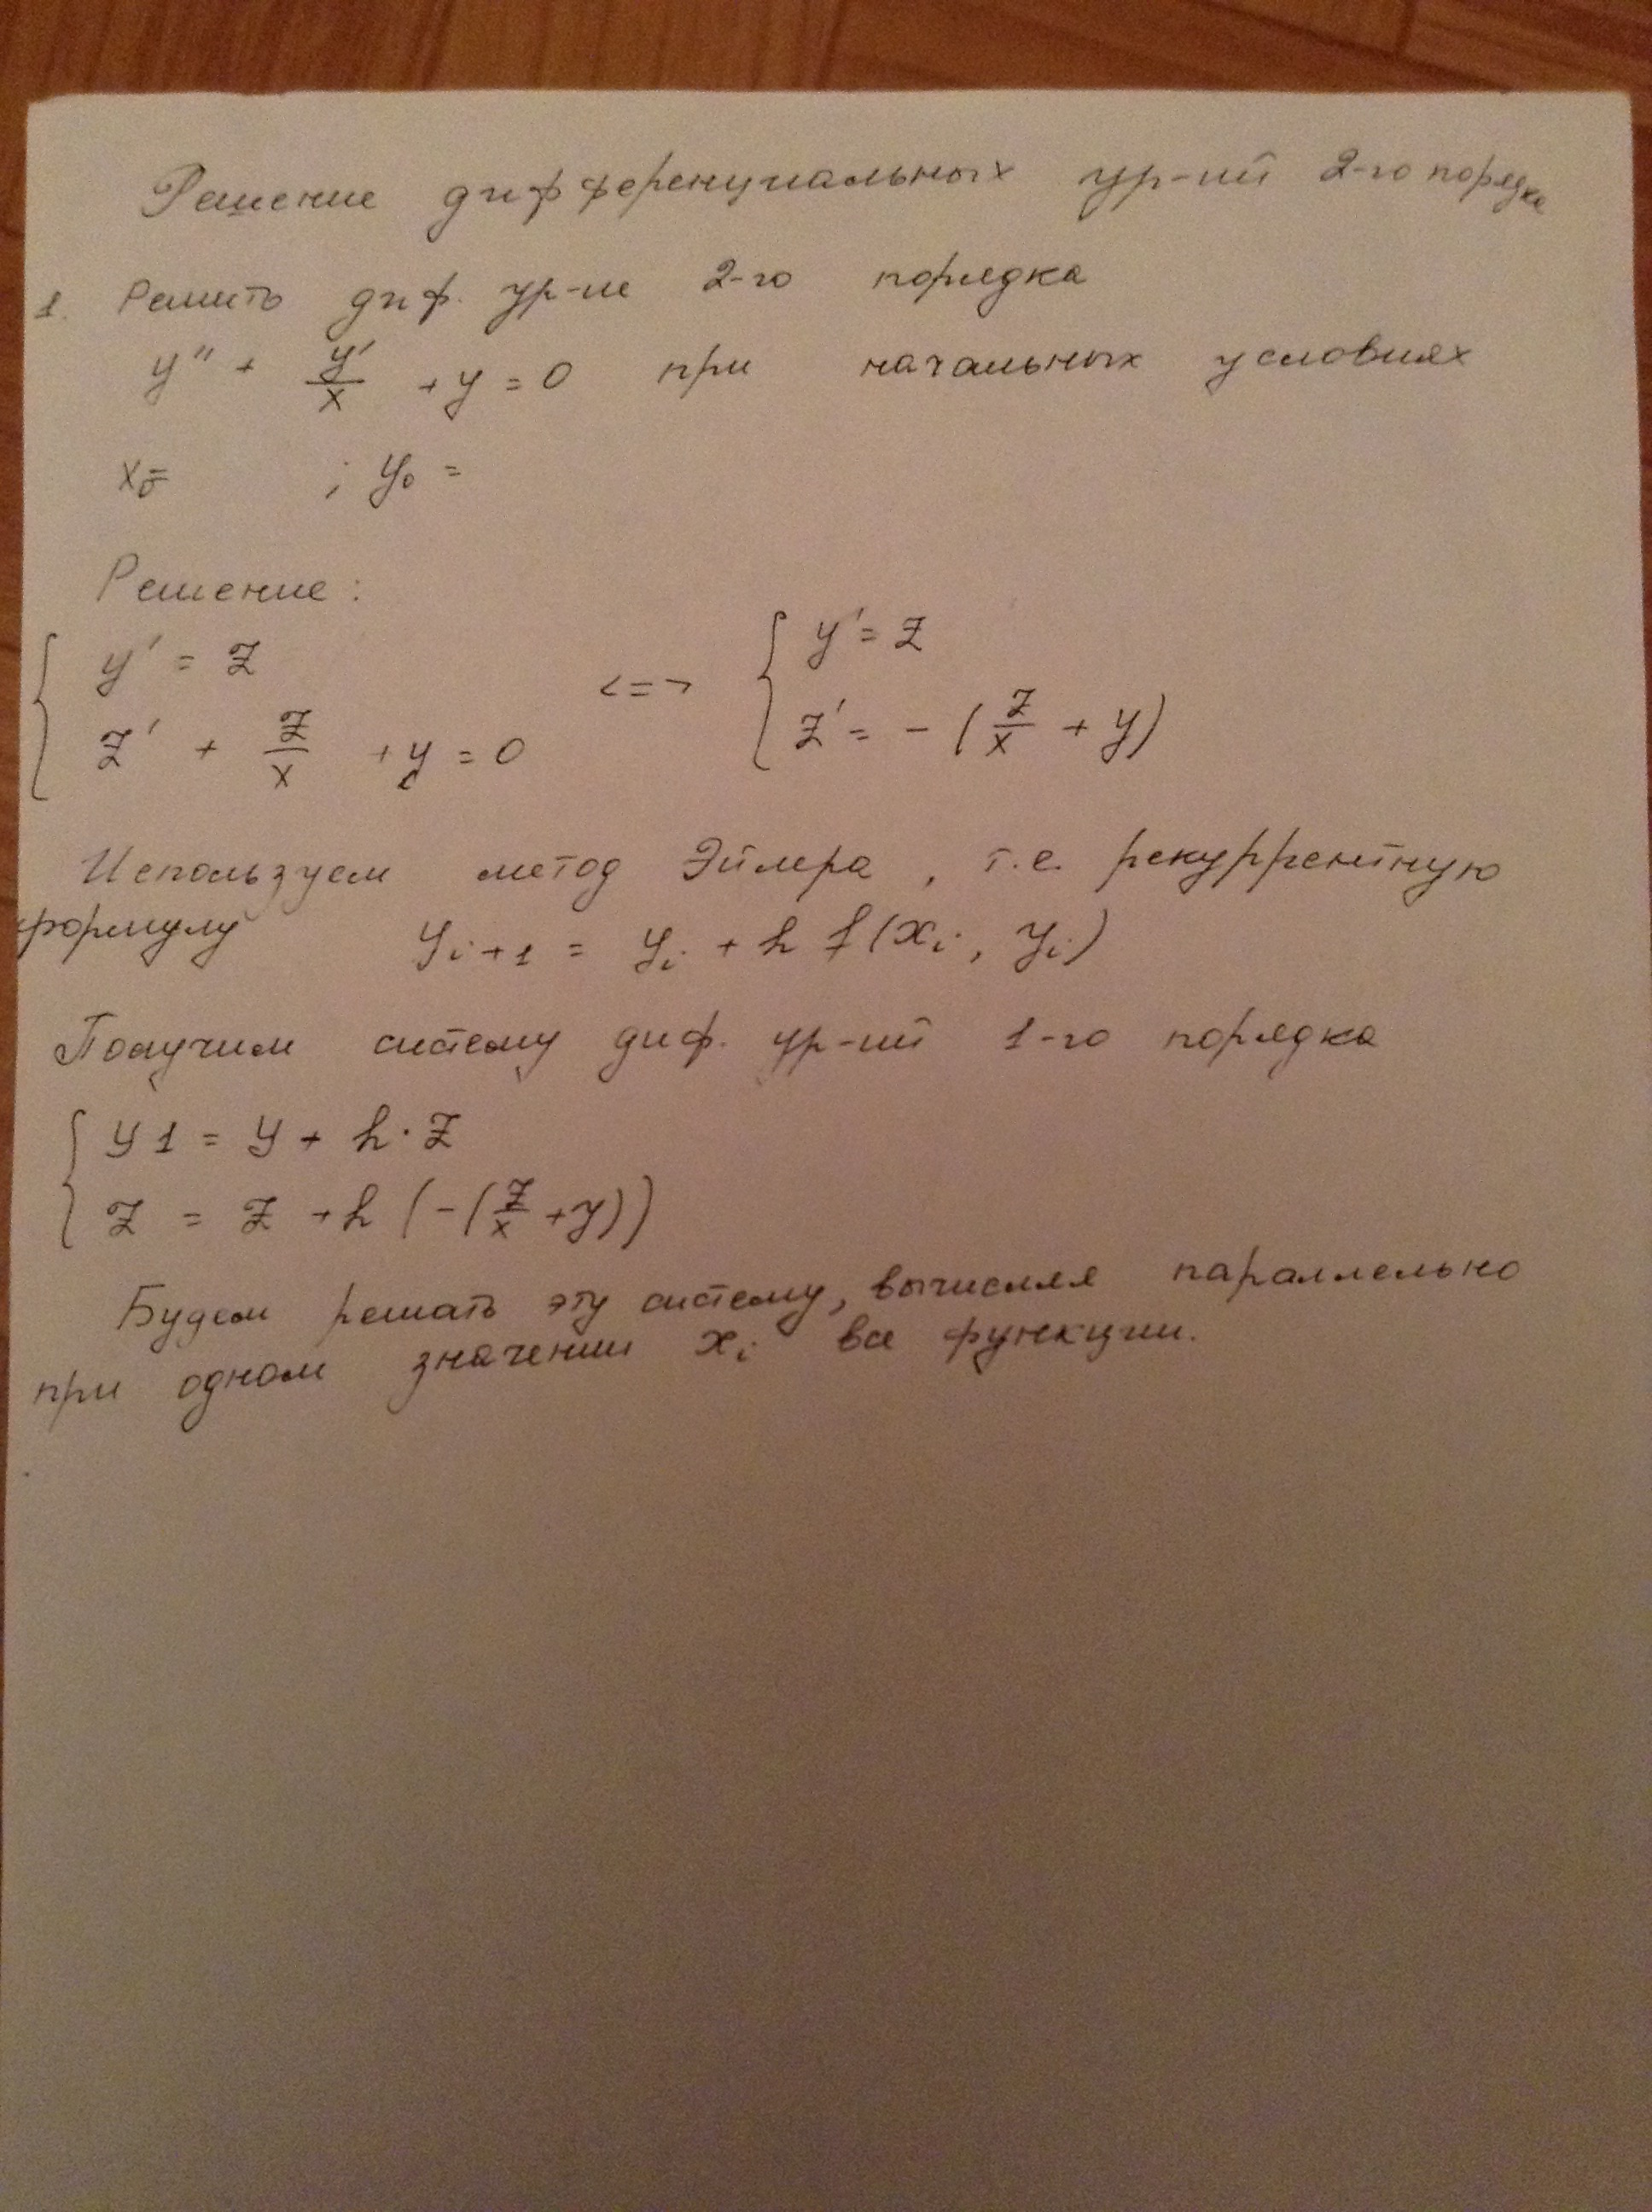 Решение дифференциальных ур-ий 2-го порядка
1. Решить диф. ур-ие 2-го порядка
y'' + y'/x + y = 0 при начальных условиях
x₀= ; y₀ =
Решение:
{ y' = z <=> { y' = z
{ z' + z/x + y = 0 { z' = - (z/x + y)
Используем метод Эйлера, т.е. рекуррентную
формулу yᵢ₊₁ = yᵢ + h f(xᵢ, yᵢ)
Получим систему диф. ур-ий 1-го порядка
{ y1 = y + h·z
{ z = z + h (-(z/x + y))
Будем решать эту систему, вычисляя параллельно
при одном значении xᵢ все функции.